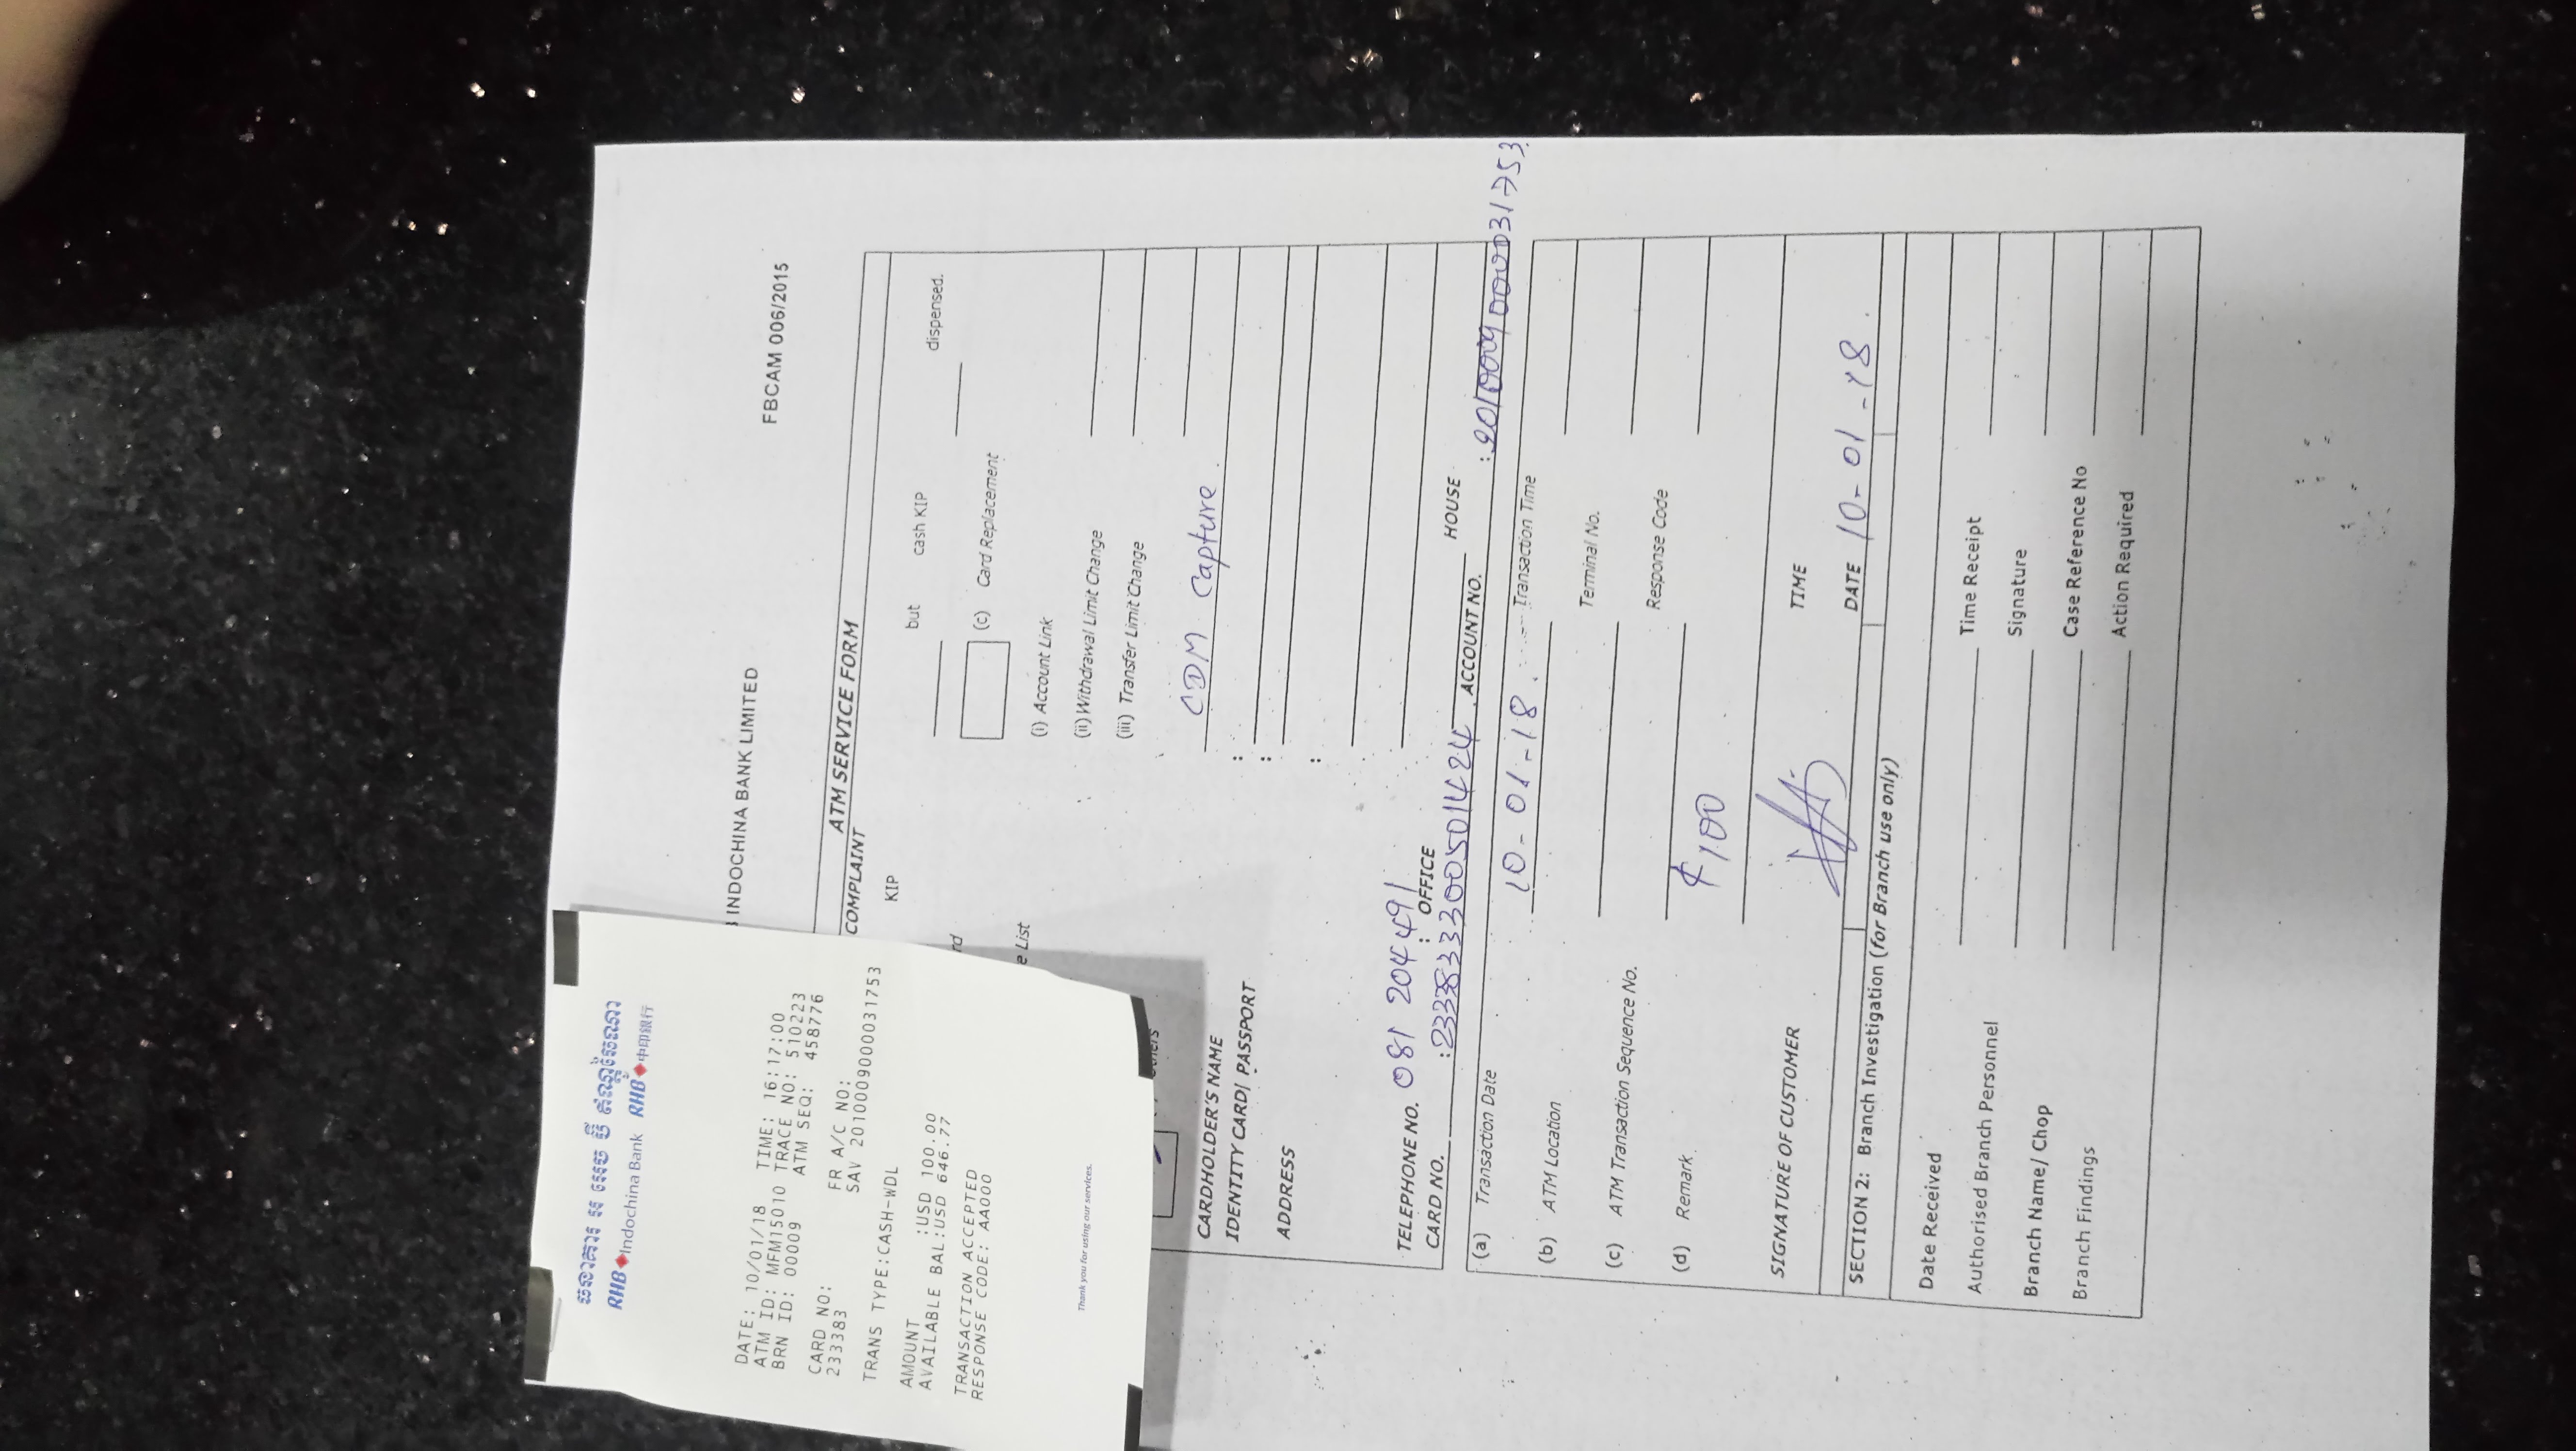 ធនាគារ អ អេច ប៊ី ឥណ្ឌូចិណា
RHB Indochina Bank RHB 中印銀行
DATE: 10/01/18 TIME: 16:17:00
ATM ID: MFM15010 TRACE NO: 510223
BRN ID: 00009 ATM SEQ: 458776
CARD NO: FR A/C NO:
233383 SAV 201000900003​1753
TRANS TYPE:CASH-WDL
AMOUNT :USD 100.00
AVAILABLE BAL:USD 646.77
TRANSACTION ACCEPTED
RESPONSE CODE: AA000
Thank you for using our services.
INDOCHINA BANK LIMITED
FBCAM 006/2015
ATM SERVICE FORM
COMPLAINT
KIP but cash KIP dispensed.
rd (c) Card Replacement
e List (i) Account Link
(ii) Withdrawal Limit Change
(iii) Transfer Limit Change
Others CDM capture.
CARDHOLDER'S NAME :
IDENTITY CARD/ PASSPORT :
ADDRESS :
TELEPHONE NO. 081 204491 : OFFICE HOUSE
CARD NO. :2333833300501424 ACCOUNT NO. :2010009000031753
(a) Transaction Date 10-01-18. Transaction Time
(b) ATM Location Terminal No.
(c) ATM Transaction Sequence No. Response Code
(d) Remark $100
SIGNATURE OF CUSTOMER TIME
DATE 10-01-18.
SECTION 2: Branch Investigation (for Branch use only)
Date Received Time Receipt
Authorised Branch Personnel Signature
Branch Name/ Chop Case Reference No
Branch Findings Action Required